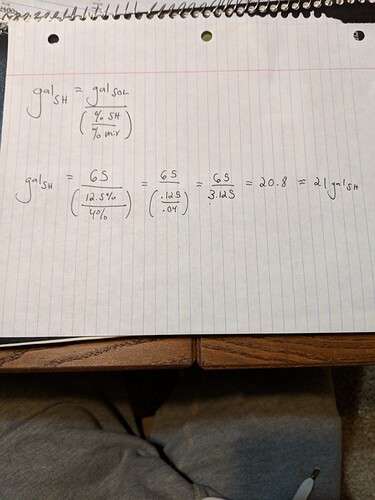 gal SH = gal SOL / (% SH / % mix)
gal SH = 65 / (12.5% / 4%) = 65 / (.125 / .04) = 65 / 3.125 = 20.8 ≈ 21 gal SH